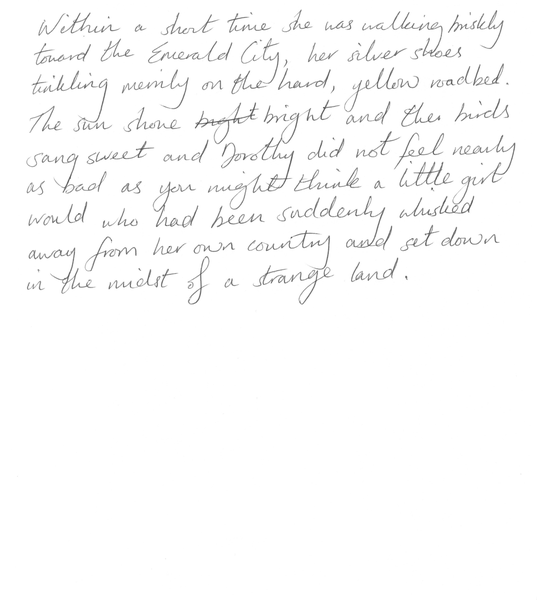 Within a short time she was walking briskly
toward the Emerald City, her silver shoes
tinkling merrily on the hard, yellow roadbed.
The sun shone bright bright and the birds
sang sweet and Dorothy did not feel nearly
as bad as you might think a little girl
would who had been suddenly whisked
away from her own country and set down
in the midst of a strange land.